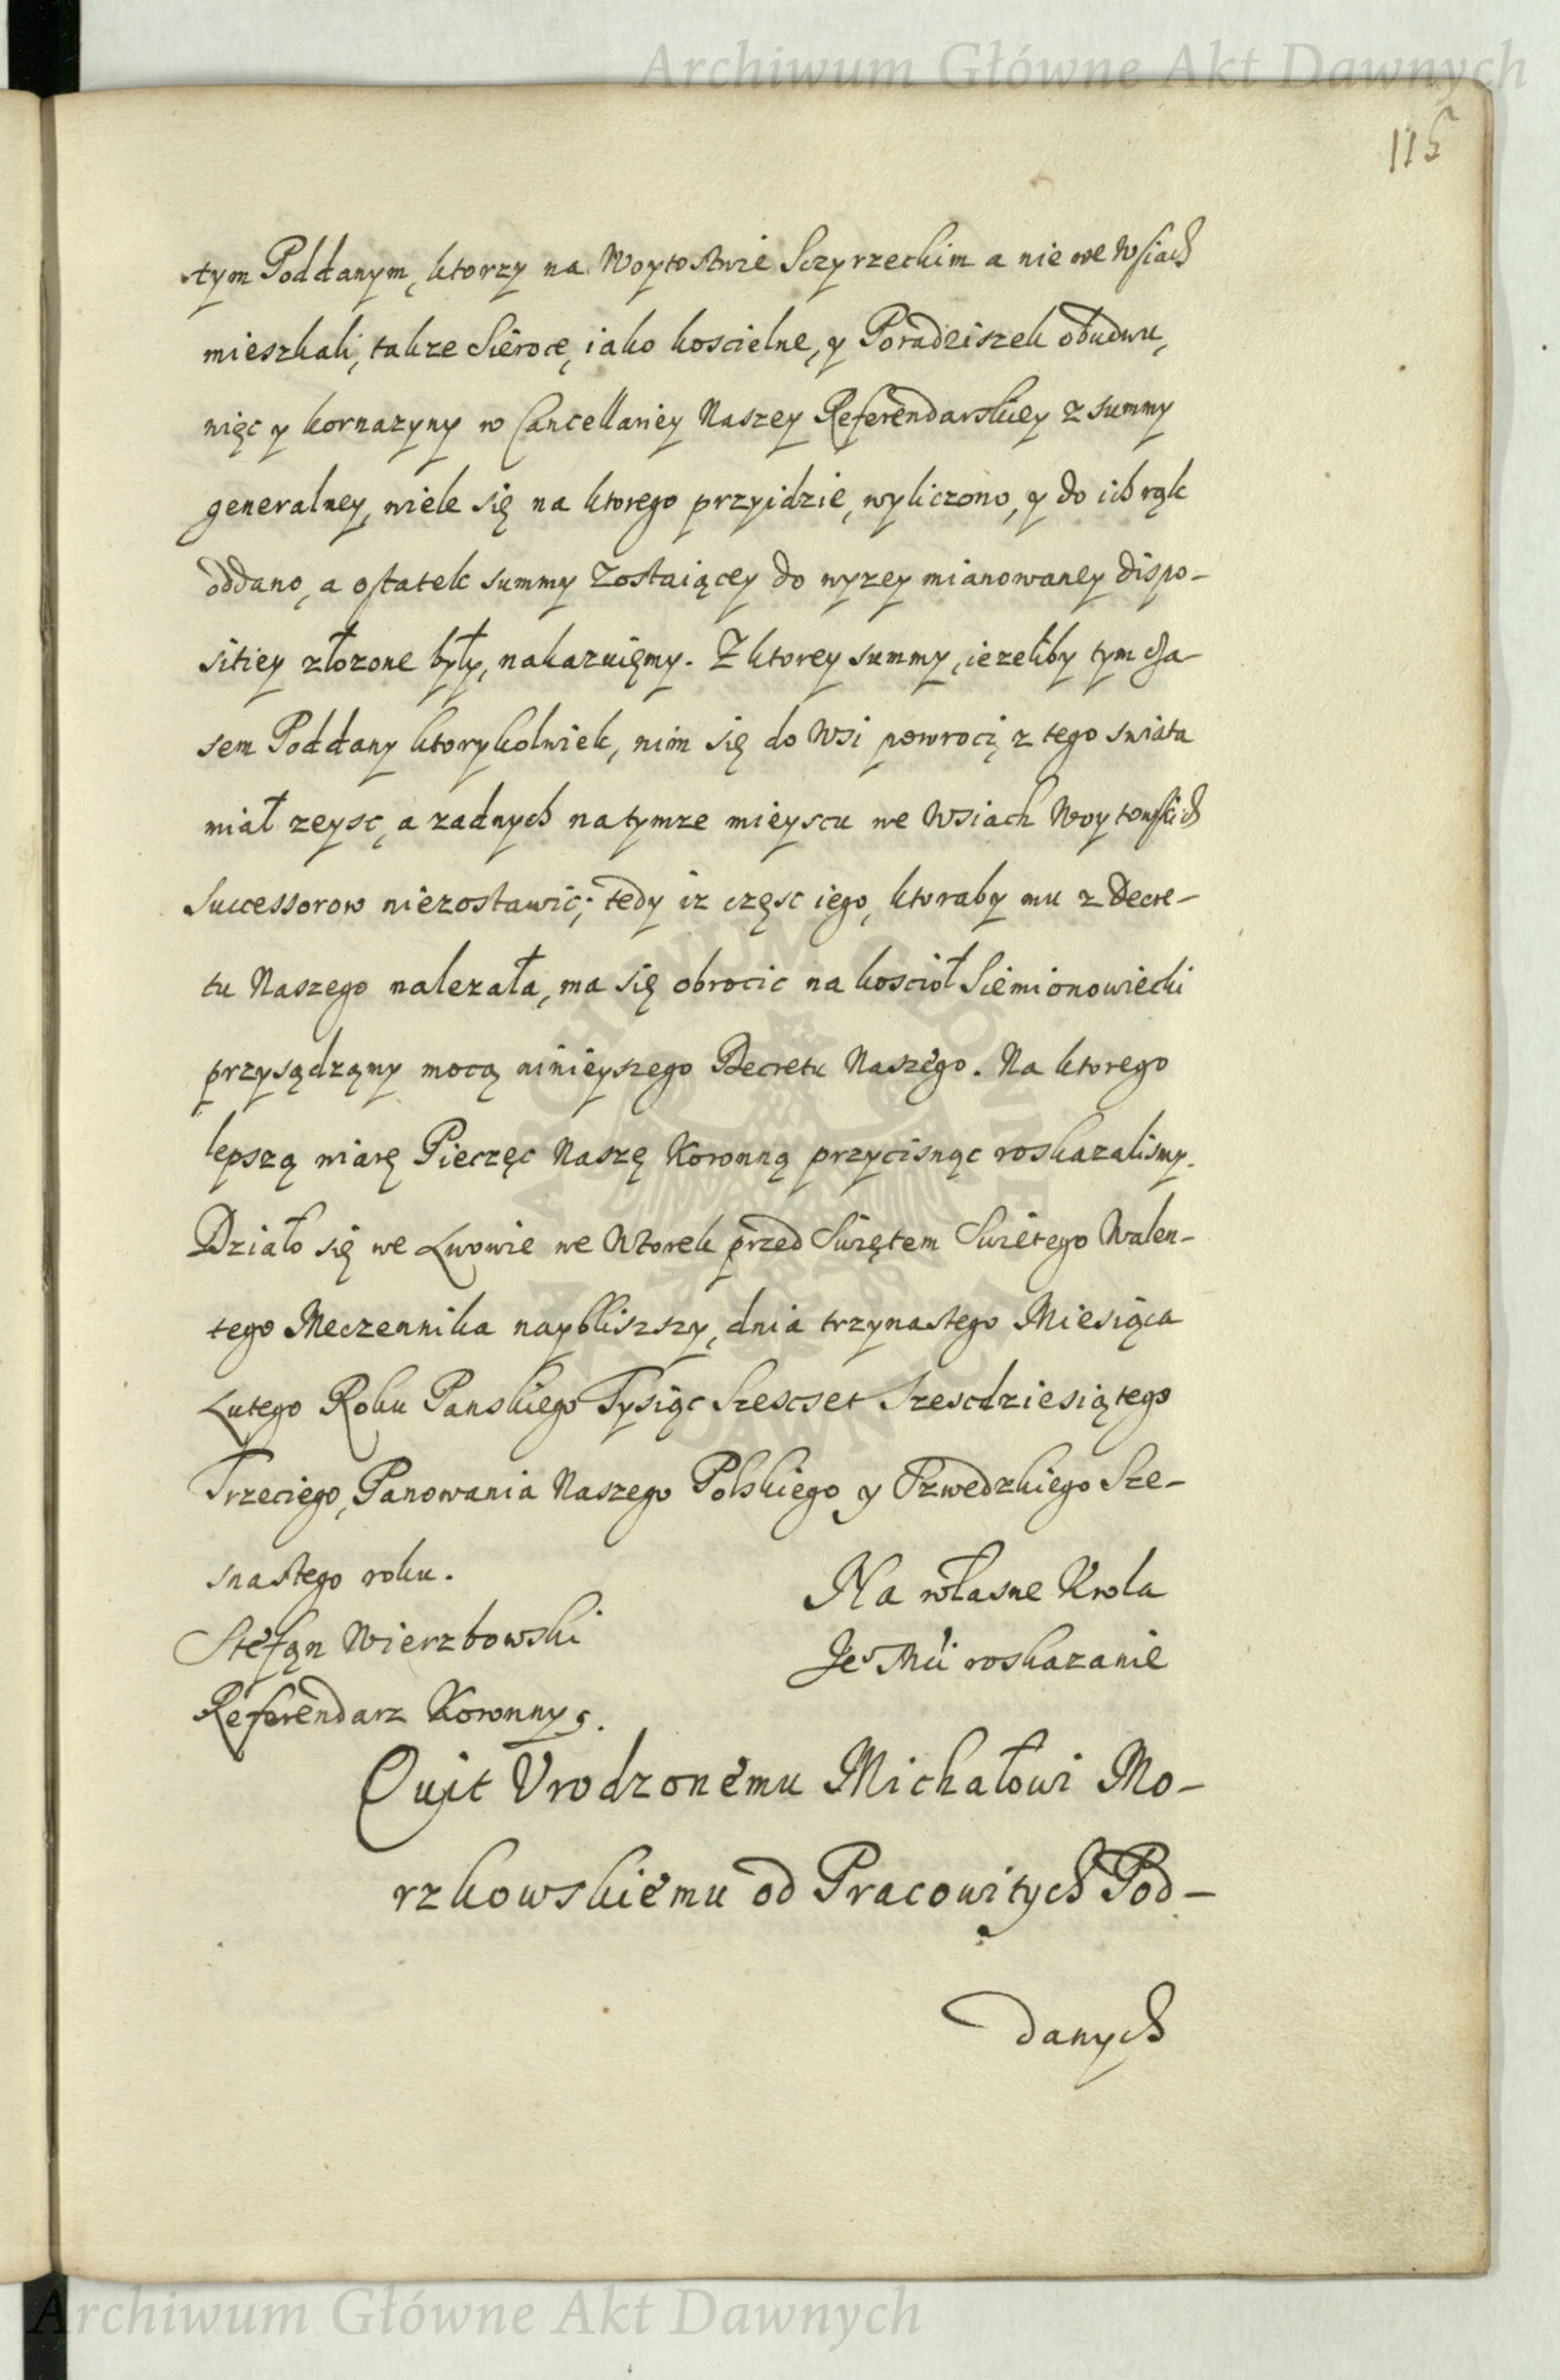 Archiwum Główne Akt Dawnych
115
tym Poddanym, ktorzy na Woytostwie Sczyrzeckim a nie we Wsiach
mieszkali, takze Sieroce, iako koscielne, y Poradziszek obudwu,
nięc y kornazyny w Cancellariey Naszey Referendarskiey z summy
generalney, wiele się na ktorego przyidzie, wyliczono, y do ich rąk
oddano, a ostatek summy Zostaiącey do wyzey mianowaney dispo-
sitiey złozone były, nakazuięmy. Z ktorey summy, iezeliby tym cza-
sem Poddany ktorykolwiek, nim się do Wsi powroci, z tego swiata
miał zeysc, a zadnych na tymze mieyscu we Wsiach Woytowskich
Successorow niezostawić; tedy iz częsc iego, ktoraby mu z Decre-
tu Naszego nalezała, ma się obrocic na kosciół Siemionowiecki
przysądząmy mocą ninieyszego Decretu Naszego. Na ktorego
lepszą wiarę Pieczęc Naszę Koronną przycisnąc roskazalismy.
Działo się we Lwowie we Wtorek przed Swiętem Swietego Walen-
tego Meczennika naybliszszy, dnia trzynastego Miesiąca
Lutego Roku Panskiego Tysiąc Szescset Szescdziesiątego
Trzeciego, Panowania Naszego Polskiego y Szwedzkiego Sze-
snastego roku.
Na własne Krola
Stefąn Wierzbowski
Je° Mći roskazanie
Referendarz Koronny s.
Quit Vrodzonemu Michałowi Mo-
rzkowskiemu od Pracowitych Pod-
danych
ARCHIWUM GŁÓWNE AKT DAWNYCH
Archiwum Główne Akt Dawnych